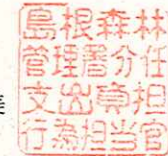 島根森林
管理署分任
支出負担
行為担当官